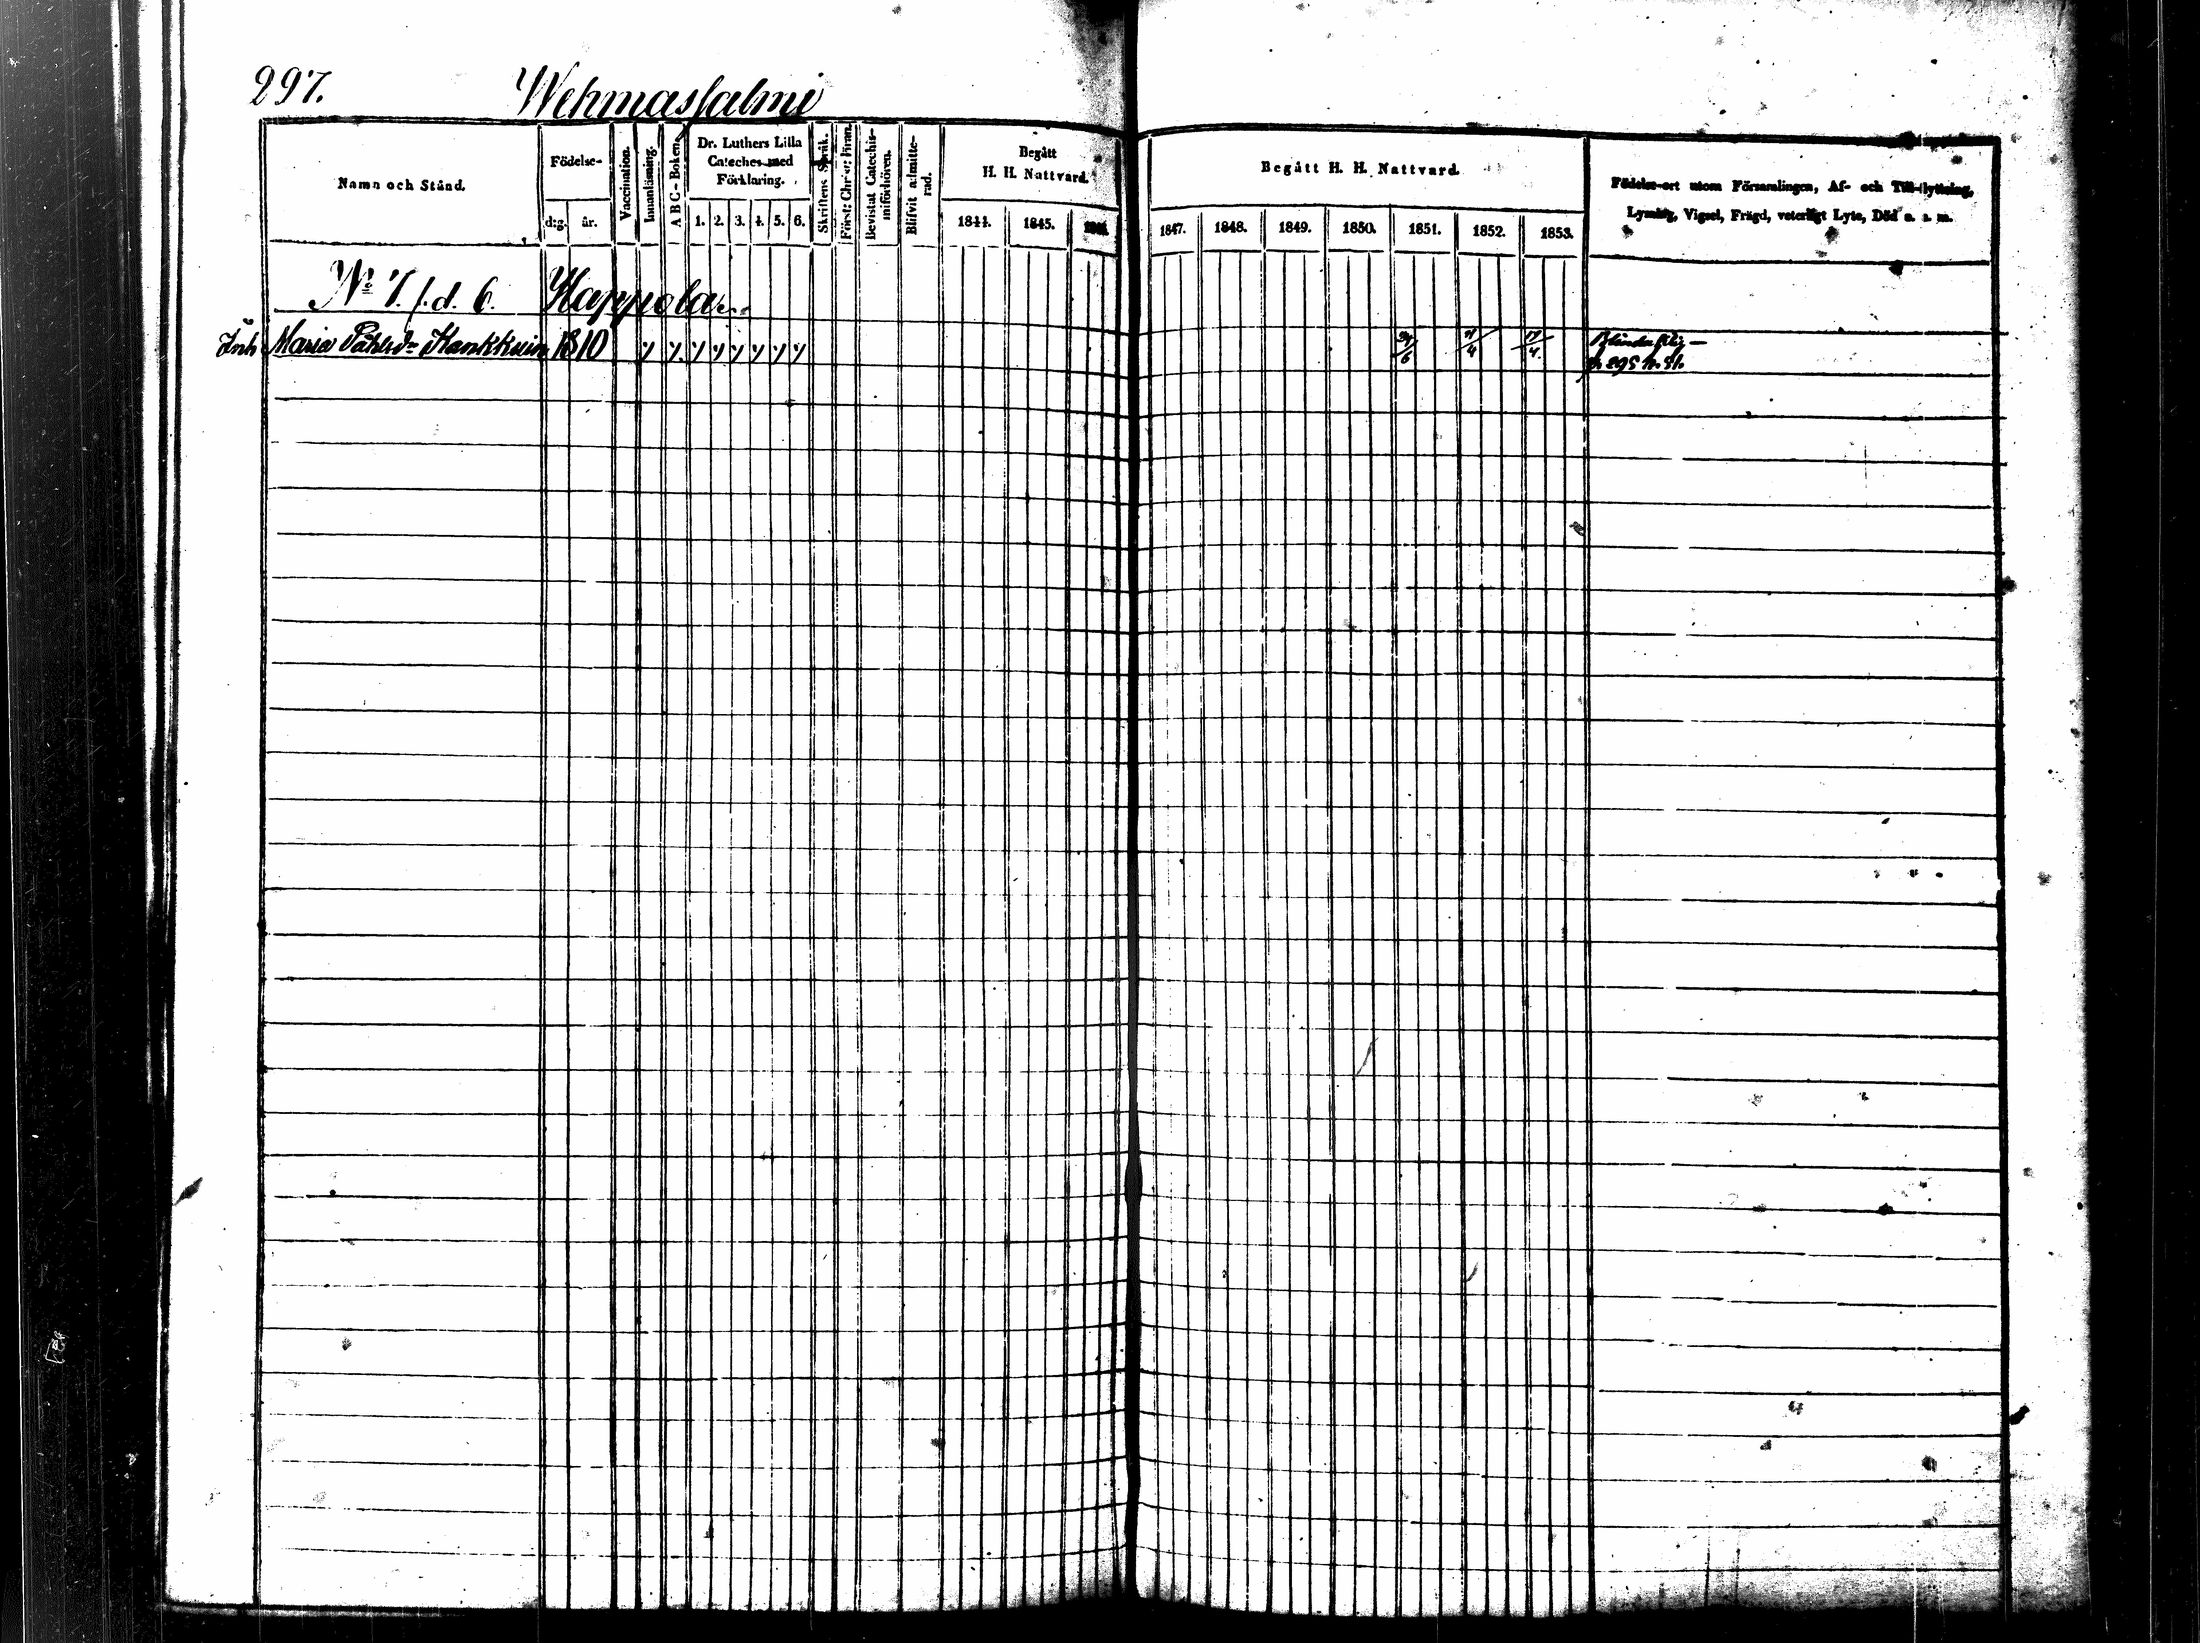 297. Wehmassalmi
Namn och Stånd.
Födelse-
d:g. år.
Vaccination.
Innanläsning.
A B C - Boken.
Dr. Luthers Lilla
Cateches med
Förklaring.
1. 2. 3. 4. 5. 6.
Skriftens Språk.
Bevistat Catechis-
miförhören.
Blifvit admitte-
rad.
Begått
H. H. Nattvard.
1844. 1845. 1846.
Begått H. H. Nattvard.
1847. 1848. 1849. 1850. 1851. 1852. 1853.
Födelse-ort utom Församlingen, Af- och Till-flyttning,
Lysning, Vigsel, Frägd, veterligt Lyte, Död o. s. m.
No 7. f.d. 6. Kappola
Inh Maria Påhlsdr Kankkuin 1810 /6 /4 /4
p. 295